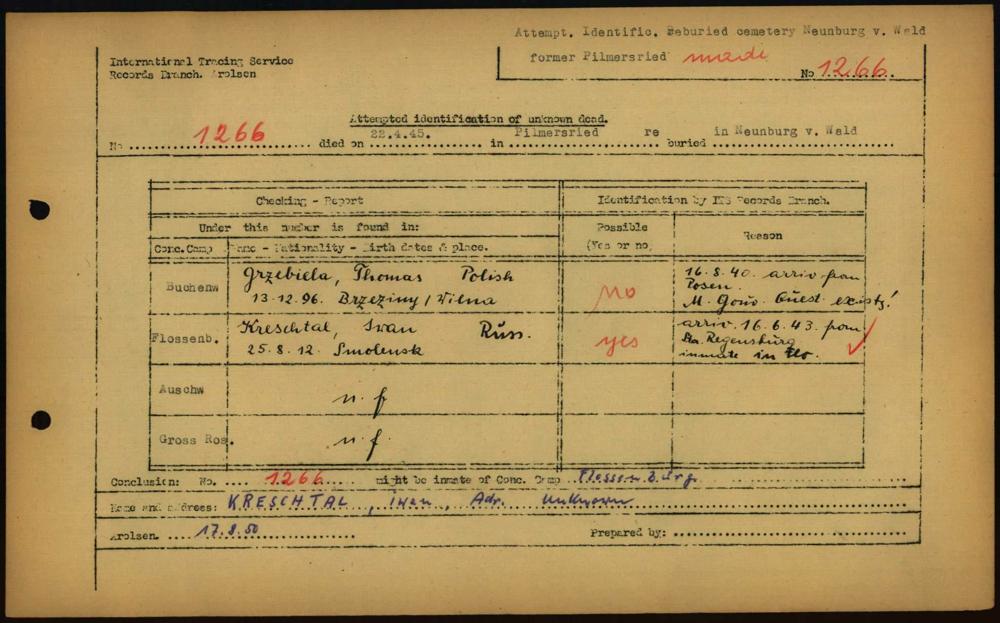 Attempt. Identific. Reburied cemetery Neunburg v. Wald
former Pilmersried made
No 1266
International Tracing Service
Records Branch. Arolsen
Attempted identification of unknown dead.
No 1266 died on 22.4.45. in Pilmersried re buried in Neunburg v. Wald
Checking - Report
Identification by ITS Records Branch.
Under this number is found in:
Possible (Yes or no)
Reason
Conc.Camp
Name - Nationality - Birth dates & place.
Buchenw
Grzebiela, Thomas Polish
13.12.96. Brzeziny/Wilna
no
16.8.40. arriv from
Posen.
M. Gouv. Quest. exists!
Flossenb.
Kreschtal, Iwan Russ.
25.8.12. Smolensk
yes
arriv. 16.6.43. from
Sta. Regensburg
inmate in Flo.
Auschw
n.f
Gross Ros.
n.f.
Conclusion: No. 1266 might be inmate of Conc. Camp Flossenbürg.
Name and adrees: KRESCHTAL, iwan, Adr. unknown
Arolsen. 17.8.50 Prepared by: